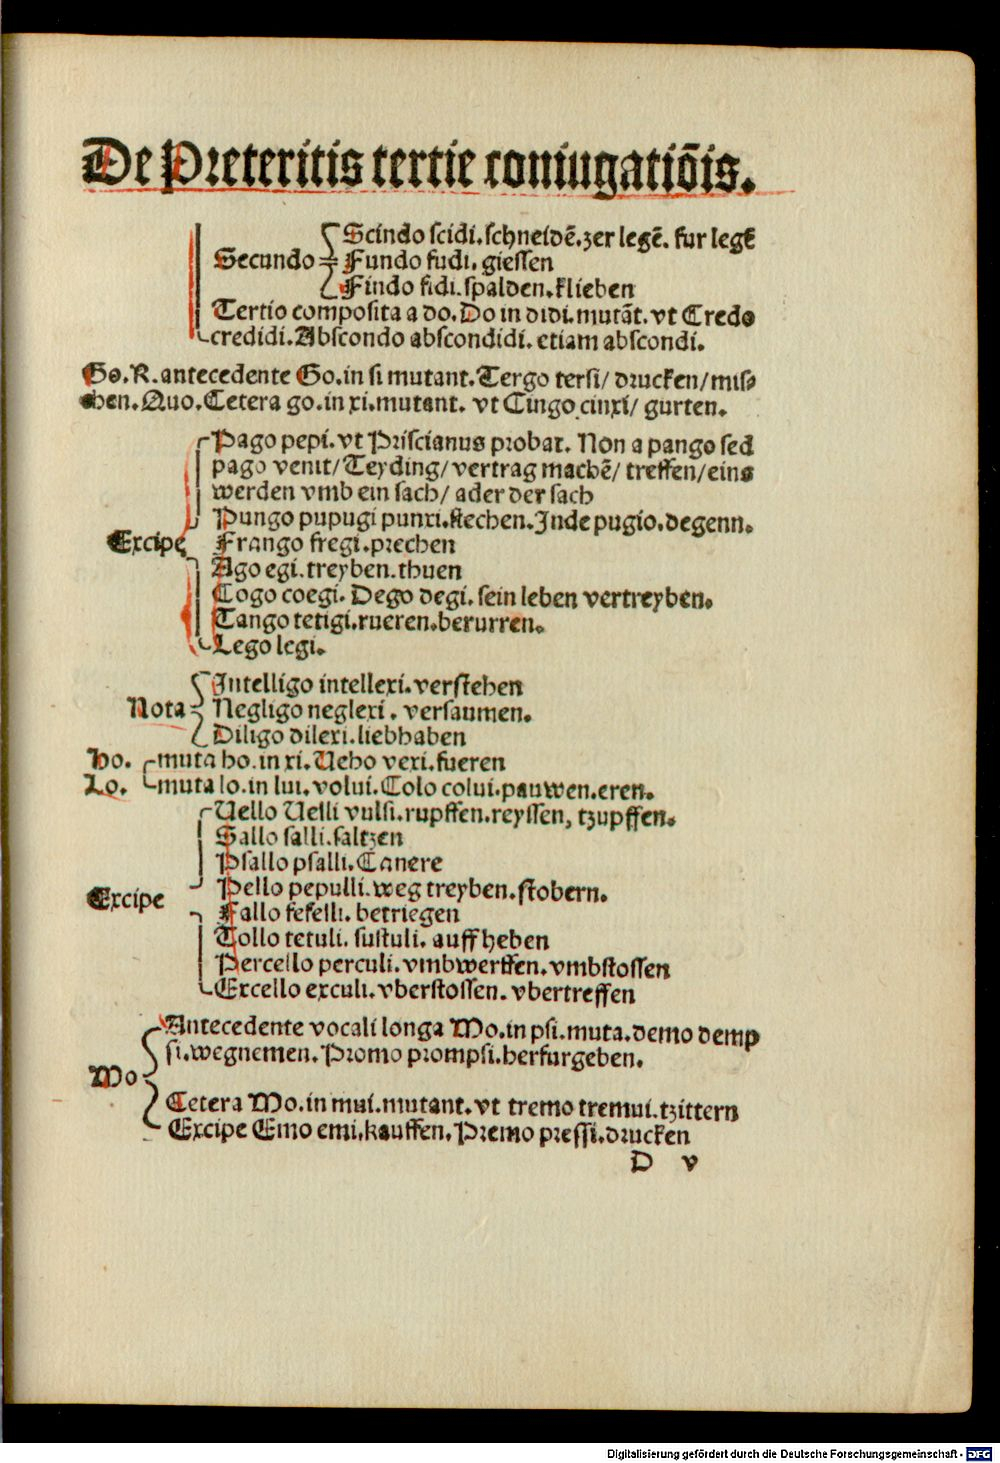 De Preteritis tertie coniugatiõis.
Scindo scidi. schneidẽ. zer legẽ. fur legẽ
Secundo Fundo fudi. giessen
Findo fidi. spalden. klieben
Tertio composita a do. Do in didi. mutãt. vt Credo
credidi. Abscondo abscondidi. etiam abscondi.
Go. R. antecedente Go. in si mutant. Tergo tersi/ drucken/ mis⸗
chen. Quo. Cetera go. in xi. mutant. vt Cingo cinxi/ gurten.
Pago pepi. vt Priscianus probat. Non a pango sed
pago venit/ Teyding/ vertrag machẽ/ treffen/ eins
werden vmb ein sach/ ader der sach
Pungo pupugi punxi. stechen. Inde pugio. degenn.
Excipe Frango fregi. prechen
Ago egi. treyben. thuen
Cogo coegi. Dego degi. sein leben vertreyben.
Tango tetigi. rueren. berurren.
Lego legi.
Intelligo intellexi. verstehen
Nota Negligo neglexi. versaumen.
Diligo dilexi. liebhaben
ho. muta ho. in xi. Ueho vexi. fueren
Lo. muta lo. in lui. volui. Colo colui. pauwen. eren.
Uello Uelli vulsi. rupffen. reyssen, tzupffen.
Sallo salli. saltzen
Psallo psalli. Canere
Pello pepulli. weg treyben. stobern.
Excipe Fallo fefelli. betriegen
Tollo tetuli. sustuli. auff heben
Percello perculi. vmbwerffen. vmbstossen
Excello exculi. vberstossen. vbertreffen
Antecedente vocali longa Mo. in psi. muta. demo demp
si. wegnemen. Promo prompsi. herfurgeben.
Mo
Cetera Mo. in mui. mutant. vt tremo tremui. tzittern
Excipe Emo emi. kauffen. Premo pressi. drucken
D v
Digitalisierung gefördert durch die Deutsche Forschungsgemeinschaft - DFG